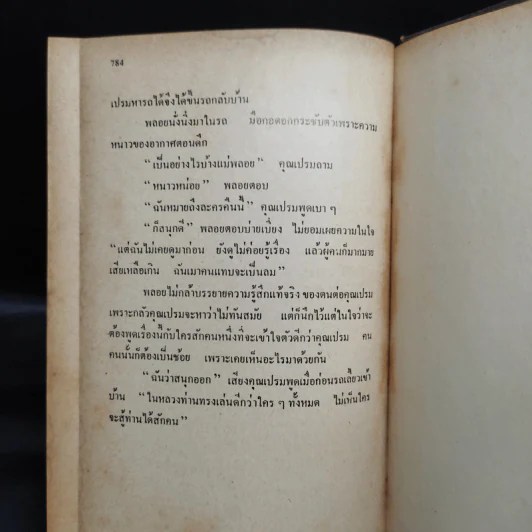 784
เปรมหารถได้จึงได้ขึ้นรถกลับบ้าน
พลอยนั่งนิ่งมาในรถ มือกอดอกกระชับตัวเพราะความ
หนาวของอากาศตอนดึก
“เป็นอย่างไรบ้างแม่พลอย” คุณเปรมถาม
“หนาวหน่อย” พลอยตอบ
“ฉันหมายถึงละครคืนนี้” คุณเปรมพูดเบา ๆ
“ก็สนุกดี” พลอยตอบบ่ายเบี่ยง ไม่ยอมเผยความในใจ
“แต่ฉันไม่เคยดูมาก่อน ยังดูไม่ค่อยรู้เรื่อง แล้วผู้คนก็มากมาย
เสียเหลือเกิน ฉันเมาคนแทบจะเป็นลม”
พลอยไม่กล้าบรรยายความรู้สึกแท้จริง ของตนต่อคุณเปรม
เพราะกลัวคุณเปรมจะหาว่าไม่ทันสมัย แต่ก็นึกไว้แต่ในใจว่าจะ
ต้องพูดเรื่องนี้กับใครสักคนหนึ่งที่จะเข้าใจตัวดีกว่าคุณเปรม คน
คนนั้นก็ต้องเป็นช้อย เพราะเคยเห็นอะไรมาด้วยกัน
“ฉันว่าสนุกออก” เสียงคุณเปรมพูดเมื่อก่อนรถเลี้ยวเข้า
บ้าน “ในหลวงท่านทรงเล่นดีกว่าใคร ๆ ทั้งหมด ไม่เห็นใคร
จะสู้ท่านได้สักคน”